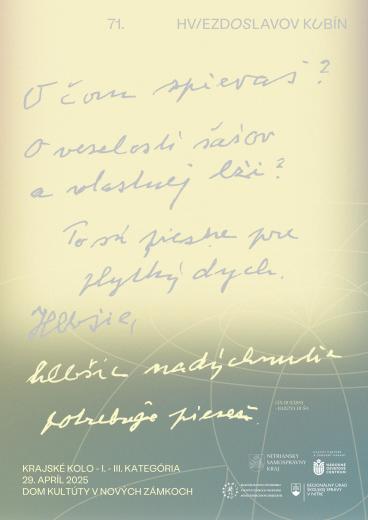 71. HVIEZDOSLAVOV KUBÍN
O čom spievaš?
O veselosti šašov
a vlastnej lži?
To sú piesne pre
plytký dych.
Hlbšie,
hlbšie nadýchnutie
potrebuje pieseň.
NITRIANSKY
SAMOSPRÁVNY
KRAJ
NÁRODNÉ
OSVETOVÉ
CENTRUM
KRAJSKÉ KOLO - I. - III. KATEGÓRIA
29. APRÍL 2025
DOM KULTÚTY V NOVÝCH ZÁMKOCH
REGIONÁLNY ÚRAD
ŠKOLSKEJ SPRÁVY
V NITRE